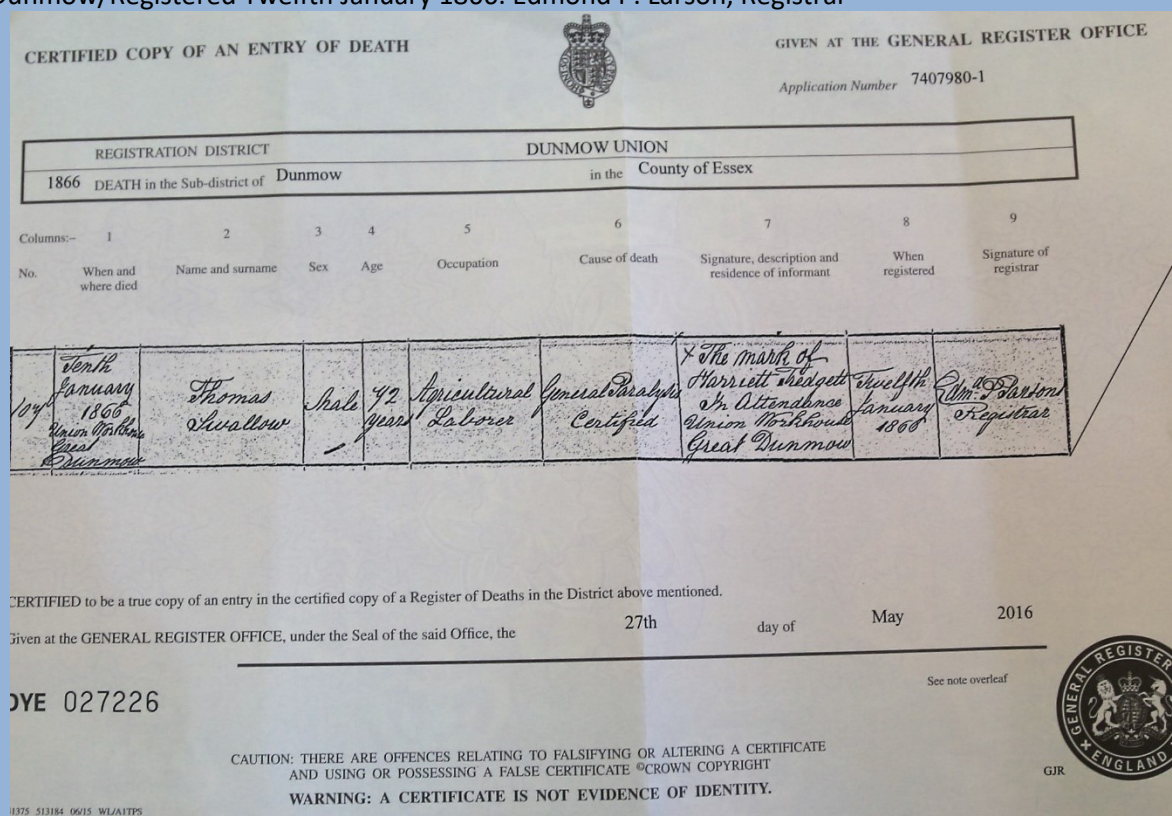 Dunmow/Registered Twelfth January 1866. Edmond P. Larson, Registrar
CERTIFIED COPY OF AN ENTRY OF DEATH
GIVEN AT THE GENERAL REGISTER OFFICE
Application Number 7407980-1
REGISTRATION DISTRICT DUNMOW UNION
1866 DEATH in the Sub-district of Dunmow in the County of Essex
Columns:- 1 2 3 4 5 6 7 8 9
No. When and where died Name and surname Sex Age Occupation Cause of death Signature, description and residence of informant When registered Signature of registrar
Tenth
January
1866
Union Workhouse
Great
Dunmow
Thomas
Swallow
Male
42
years
Agricultural
Laborer
General Paralysis
Certified
X The mark of
Harriett Tredgett
In Attendance
Union Workhouse
Great Dunmow
Twelfth
January
1866
Registrar
CERTIFIED to be a true copy of an entry in the certified copy of a Register of Deaths in the District above mentioned.
Given at the GENERAL REGISTER OFFICE, under the Seal of the said Office, the 27th day of May 2016
See note overleaf
DYE 027226
CAUTION: THERE ARE OFFENCES RELATING TO FALSIFYING OR ALTERING A CERTIFICATE
AND USING OR POSSESSING A FALSE CERTIFICATE ©CROWN COPYRIGHT
WARNING: A CERTIFICATE IS NOT EVIDENCE OF IDENTITY.
GENERAL REGISTER
ENGLAND
GJR
513184 06/15 WL/A1TPS